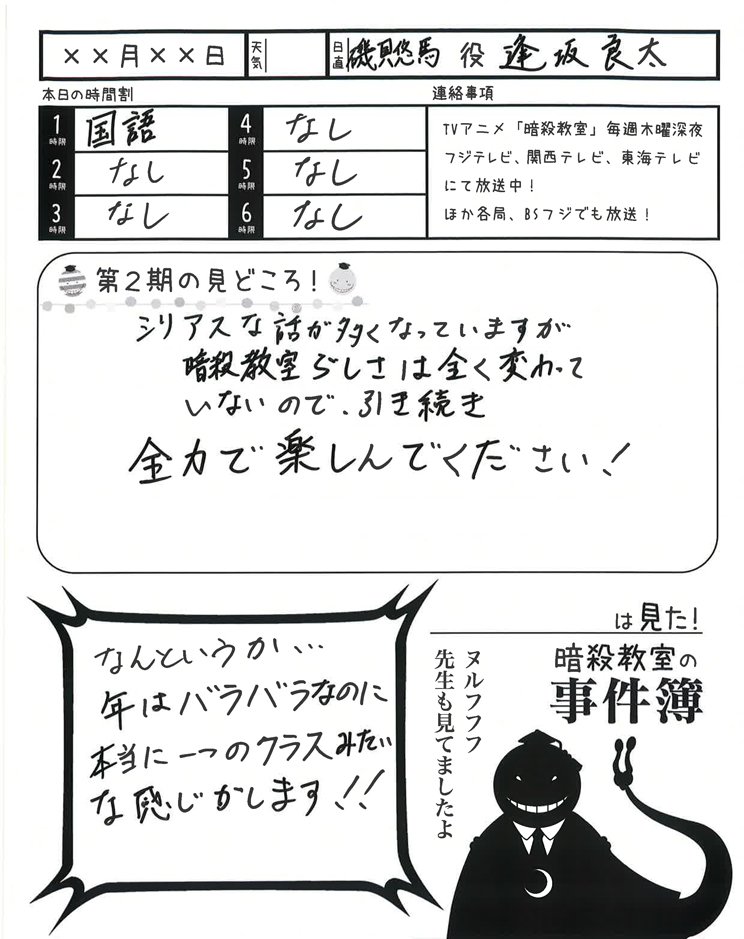 ××月××日
天気
日直
磯貝悠馬 役 逢坂良太
本日の時間割
1時限 国語
2時限 なし
3時限 なし
4時限 なし
5時限 なし
6時限 なし
連絡事項
TVアニメ「暗殺教室」毎週木曜深夜
フジテレビ、関西テレビ、東海テレビ
にて放送中！
ほか各局、BSフジでも放送！
第2期の見どころ！
シリアスな話が多くなっていますが
暗殺教室らしさは全く変わって
いないので、引き続き
全力で楽しんでください！
は見た！
暗殺教室の
事件簿
ヌルフフフ
先生も見てましたよ
なんというか…
年はバラバラなのに
本当に一つのクラスみたい
な感じがします!!